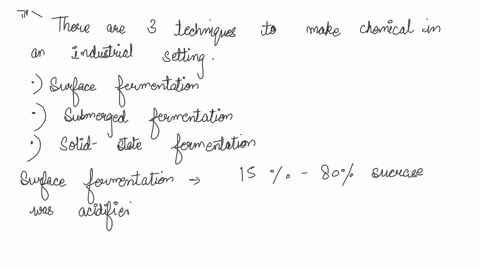 There are 3 techniques to make chemical in
an industrial setting.
·) Surface fermentation
·) Submerged fermentation
·) Solid- state fermentation
Surface fermentation → 15 % - 80% sucrase
was acidifier